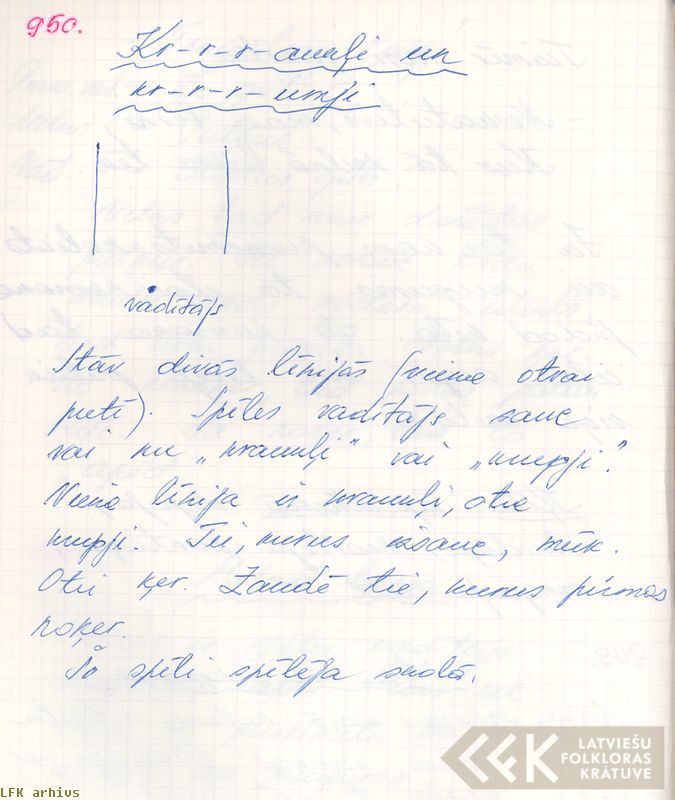 950.
Kr-r-r-auuļi un
kr-r-r-umji
vadītājs
Stāv divās līnijās (viena otrai
pretī). Spēles vadītājs sauc
vai nu „krauuļi" vai „krupji".
Viena līnija ir krauuļi, otra
krupji. Tie, kurus izsauc, mūk.
Otri ķer. Zaudē tie, kurus pirmos
noķer.
Šo spēli spēlēja skolā.
LATVIEŠU
FOLKLORAS
KRĀTUVE
LFK arhivs